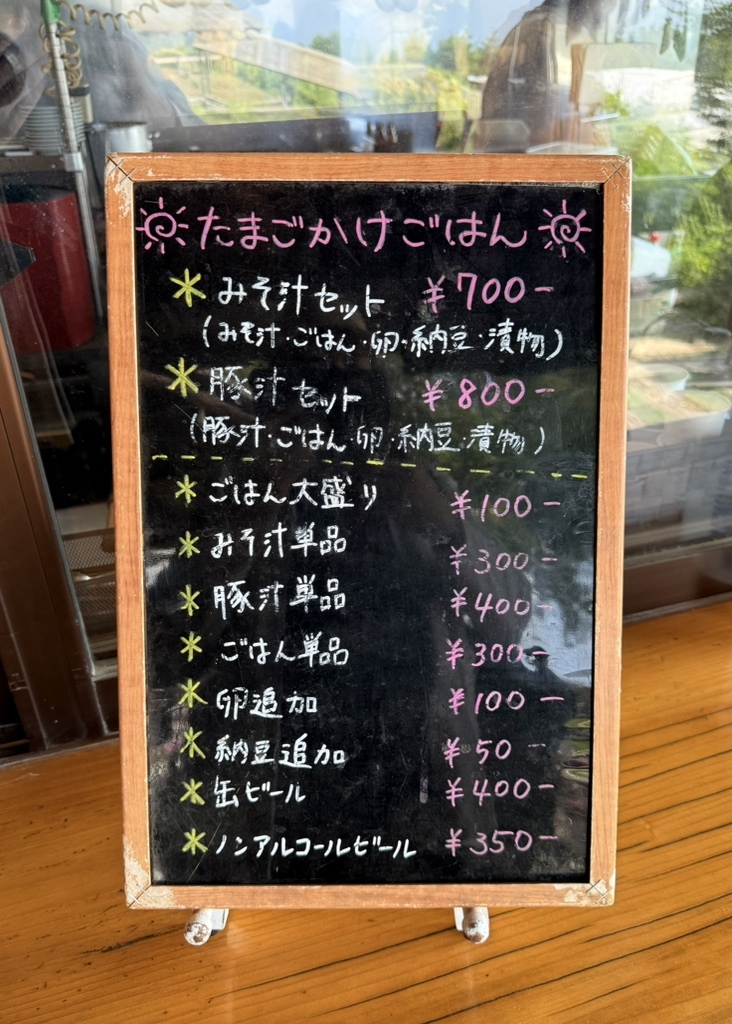 たまごかけごはん
* みそ汁セット ¥700-
(みそ汁・ごはん・卵・納豆・漬物)
* 豚汁セット ¥800-
(豚汁・ごはん・卵・納豆・漬物)
* ごはん大盛り ¥100-
* みそ汁単品 ¥300-
* 豚汁単品 ¥400-
* ごはん単品 ¥300-
* 卵追加 ¥100-
* 納豆追加 ¥50-
* 缶ビール ¥400-
* ノンアルコールビール ¥350-